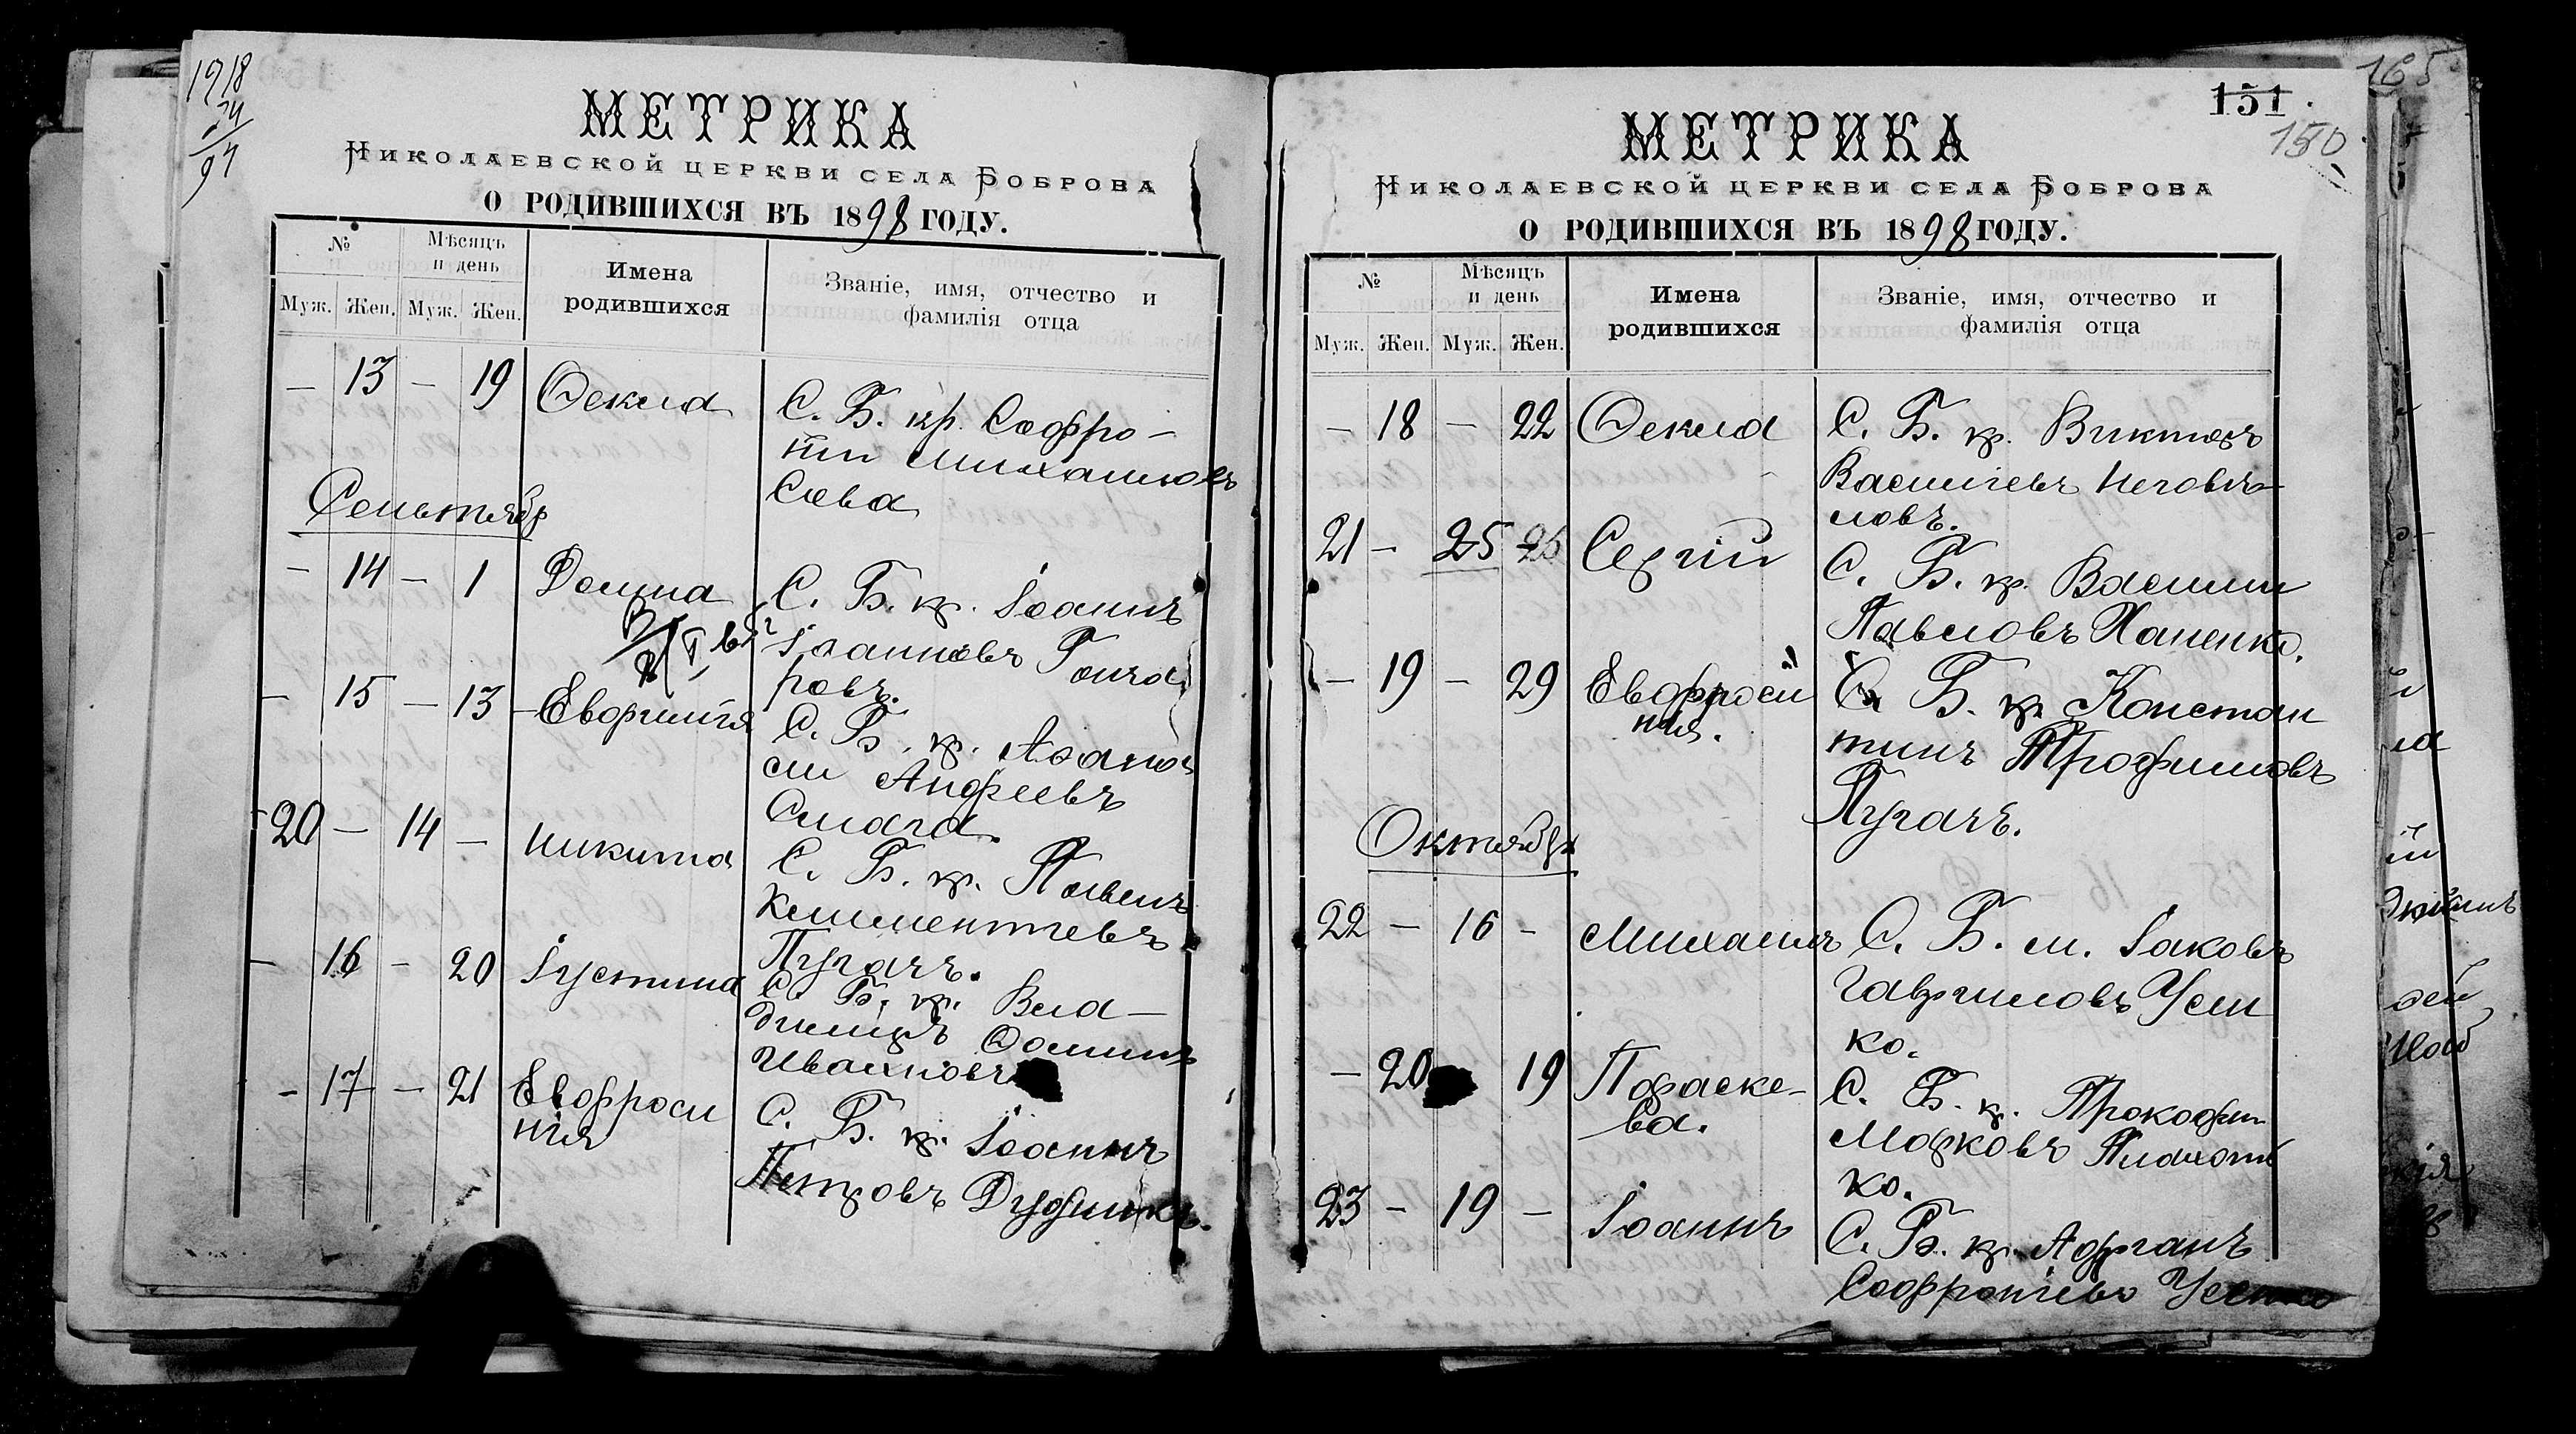 1918
МЕТРИКА
Николаевской церкви села Боброва
О РОДИВШИХСЯ ВЪ 1898 ГОДУ.
№
Мѣсяцъ и день
Имена родившихся
Званіе, имя, отчество и фамилія отца
Муж. Жен. Муж. Жен.
— 13 — 19 Ѳекла С. Б. кр. Софро-
ній Михаиловъ
Сова
Сентябр
— 14 — 1 Домна С. Б. кр. Іоаннъ
Іоанновъ Гонча
ровъ.
— 15 — 13 Евфимія С. Б. кр. Аѳана
сій Андреевъ
Смага
20 — 14 — Никита С. Б. кр. Павелъ
Климентіевъ
Пугачъ.
— 16 — 20 Іустина С. Б. кр. Вла-
димиръ Ѳоминъ
Ивахновъ
— 17 — 21 Евфроси
нія
С. Б. кр. Іоаннъ
Петровъ Дудник
165
151
150
МЕТРИКА
Николаевской церкви села Боброва
О РОДИВШИХСЯ ВЪ 1898 ГОДУ.
№
Мѣсяцъ и день
Имена родившихся
Званіе, имя, отчество и фамилія отца
Муж. Жен. Муж. Жен.
— 18 — 22 Ѳекла С. Б. кр. Викторъ
Василіевъ
ловъ.
21 — 25 25 Сергій С. Б. кр. Василій
Павловъ Ханенко.
— 19 — 29 Евфроси
нія.
С. Б. кр. Констан
тинъ Трофимовъ
Пугачъ.
Октябрь
22 — 16 — Михаилъ С. Б. м. Іаковъ
Гавриловъ Усен
ко.
— 20 19 Параске-
ва.
С. Б. кр. Прокофій
Марковъ
ко.
23 — 19 — Іоаннъ С. Б. кр. Адріанъ
Софроніевъ Усенко